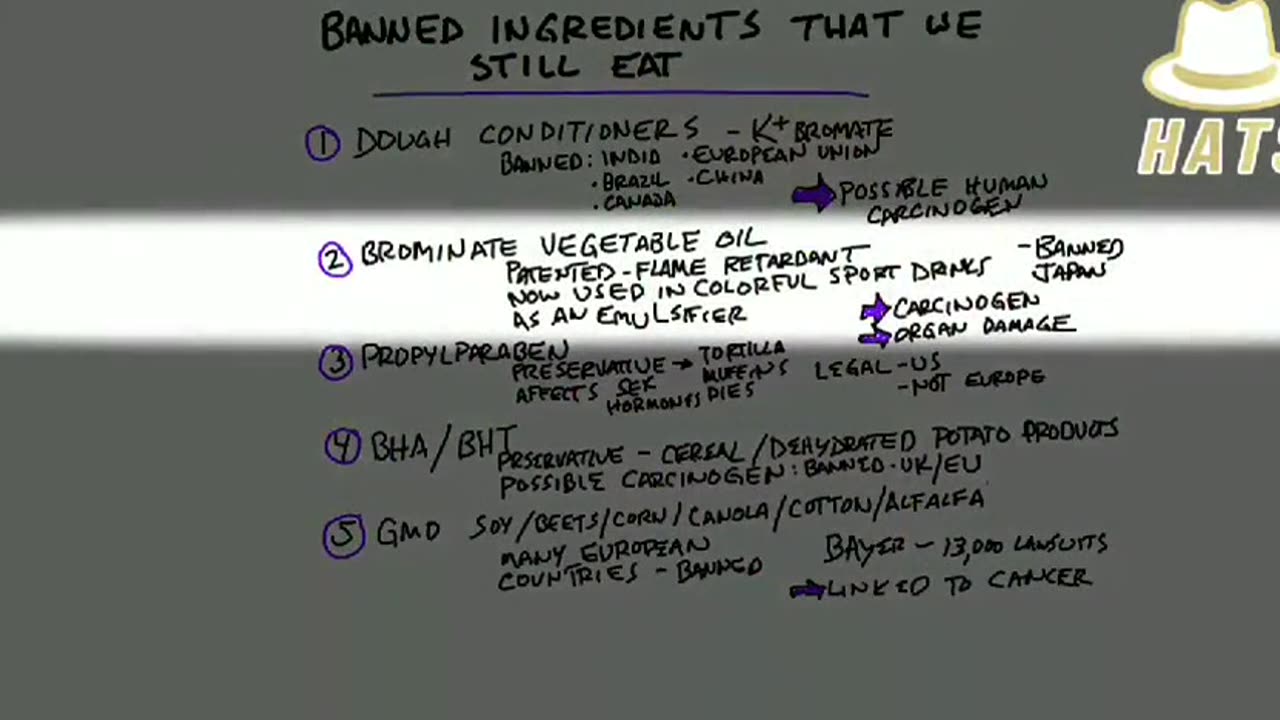 BANNED INGREDIENTS THAT WE
STILL EAT
HATS
① DOUGH CONDITIONERS - K+ BROMATE
BANNED: INDIA · EUROPEAN UNION
· BRAZIL · CHINA
· CANADA
POSSIBLE HUMAN
CARCINOGEN
② BROMINATE VEGETABLE OIL
PATENTED - FLAME RETARDANT
NOW USED IN COLORFUL SPORT DRINKS
AS AN EMULSIFIER
- BANNED
JAPAN
CARCINOGEN
ORGAN DAMAGE
③ PROPYLPARABEN
PRESERVATIVE → TORTILLA
MUFFINS
PIES
AFFECTS SEX
HORMONES
LEGAL - US
- NOT EUROPE
④ BHA/BHT
PRSERVATIVE - CEREAL/DEHYDRATED POTATO PRODUCTS
POSSIBLE CARCINOGEN: BANNED · UK/EU
⑤ GMO SOY/BEETS/CORN/CANOLA/COTTON/ALFALFA
MANY EUROPEAN
COUNTRIES - BANNED
BAYER - 13,000 LAWSUITS
LINKED TO CANCER